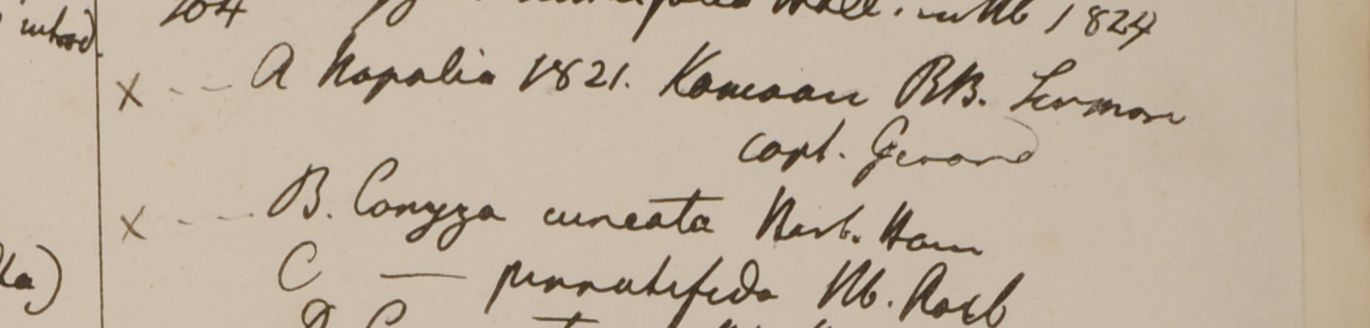 introd.
104 Wall. in Hb 1824
x - - A Napalia 1821. Kamaon RB. Sirmore
Capt. Gerard
x - - B. Conyza cuneata Herb. Ham
C — pinnatifida Hb. Roxb